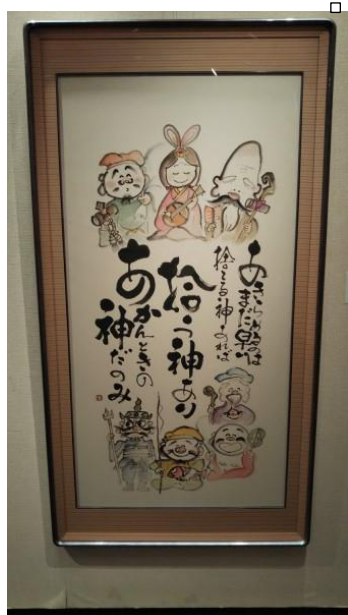 あきらめるのは
まだ早い
捨てる神あれば
拾う神あり
あかんときの
神だのみ